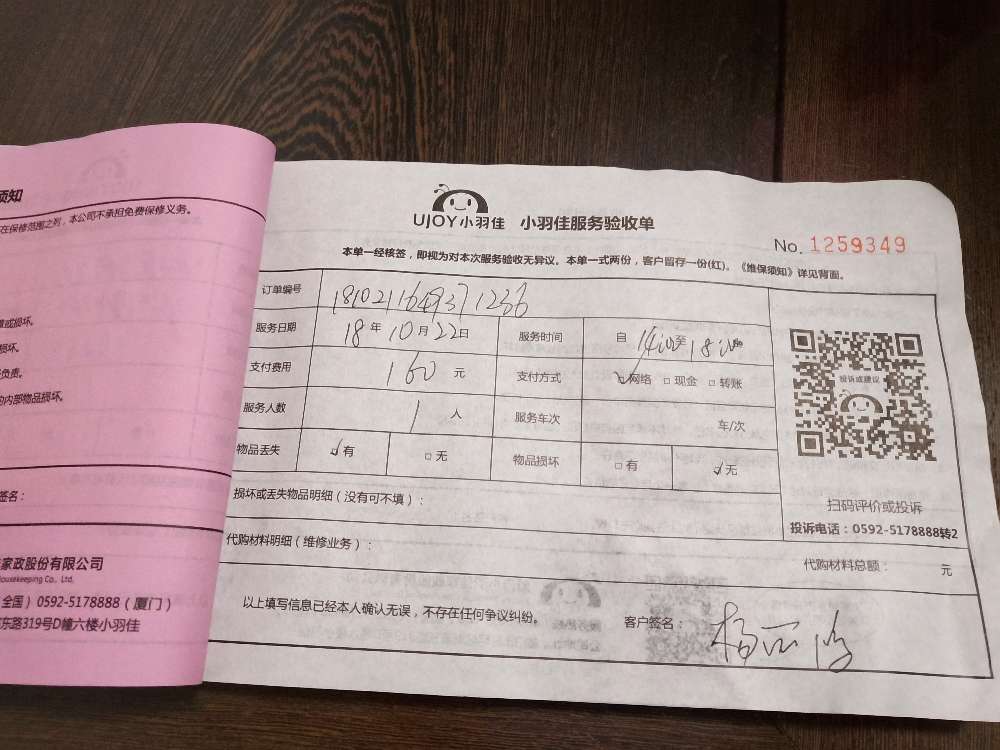 须知
在保修范围之列，本公司不承担免费保修义务。
损坏。
负责。
的内部物品损坏。
签名：
家政股份有限公司
ousekeeping Co., Ltd.
全国）0592-5178888（厦门）
东路319号D幢六楼小羽佳
UJOY小羽佳 小羽佳服务验收单
No. 1259349
本单一经核签，即视为对本次服务验收无异议。本单一式两份，客户留存一份(红)。《维保须知》详见背面。
订单编号 181021164937 1236
服务日期 18年10月22日 服务时间 自14:00至18:00
支付费用 160元 支付方式 ☑网络 □现金 □转账
服务人数 1人 服务车次 车/次
物品丢失 ☑有 □无 物品损坏 □有 ☑无
投诉或建议
扫码评价或投诉
投诉电话：0592-5178888转2
损坏或丢失物品明细（没有可不填）：
代购材料明细（维修业务）： 代购材料总额： 元
以上填写信息已经本人确认无误，不存在任何争议纠纷。 客户签名：